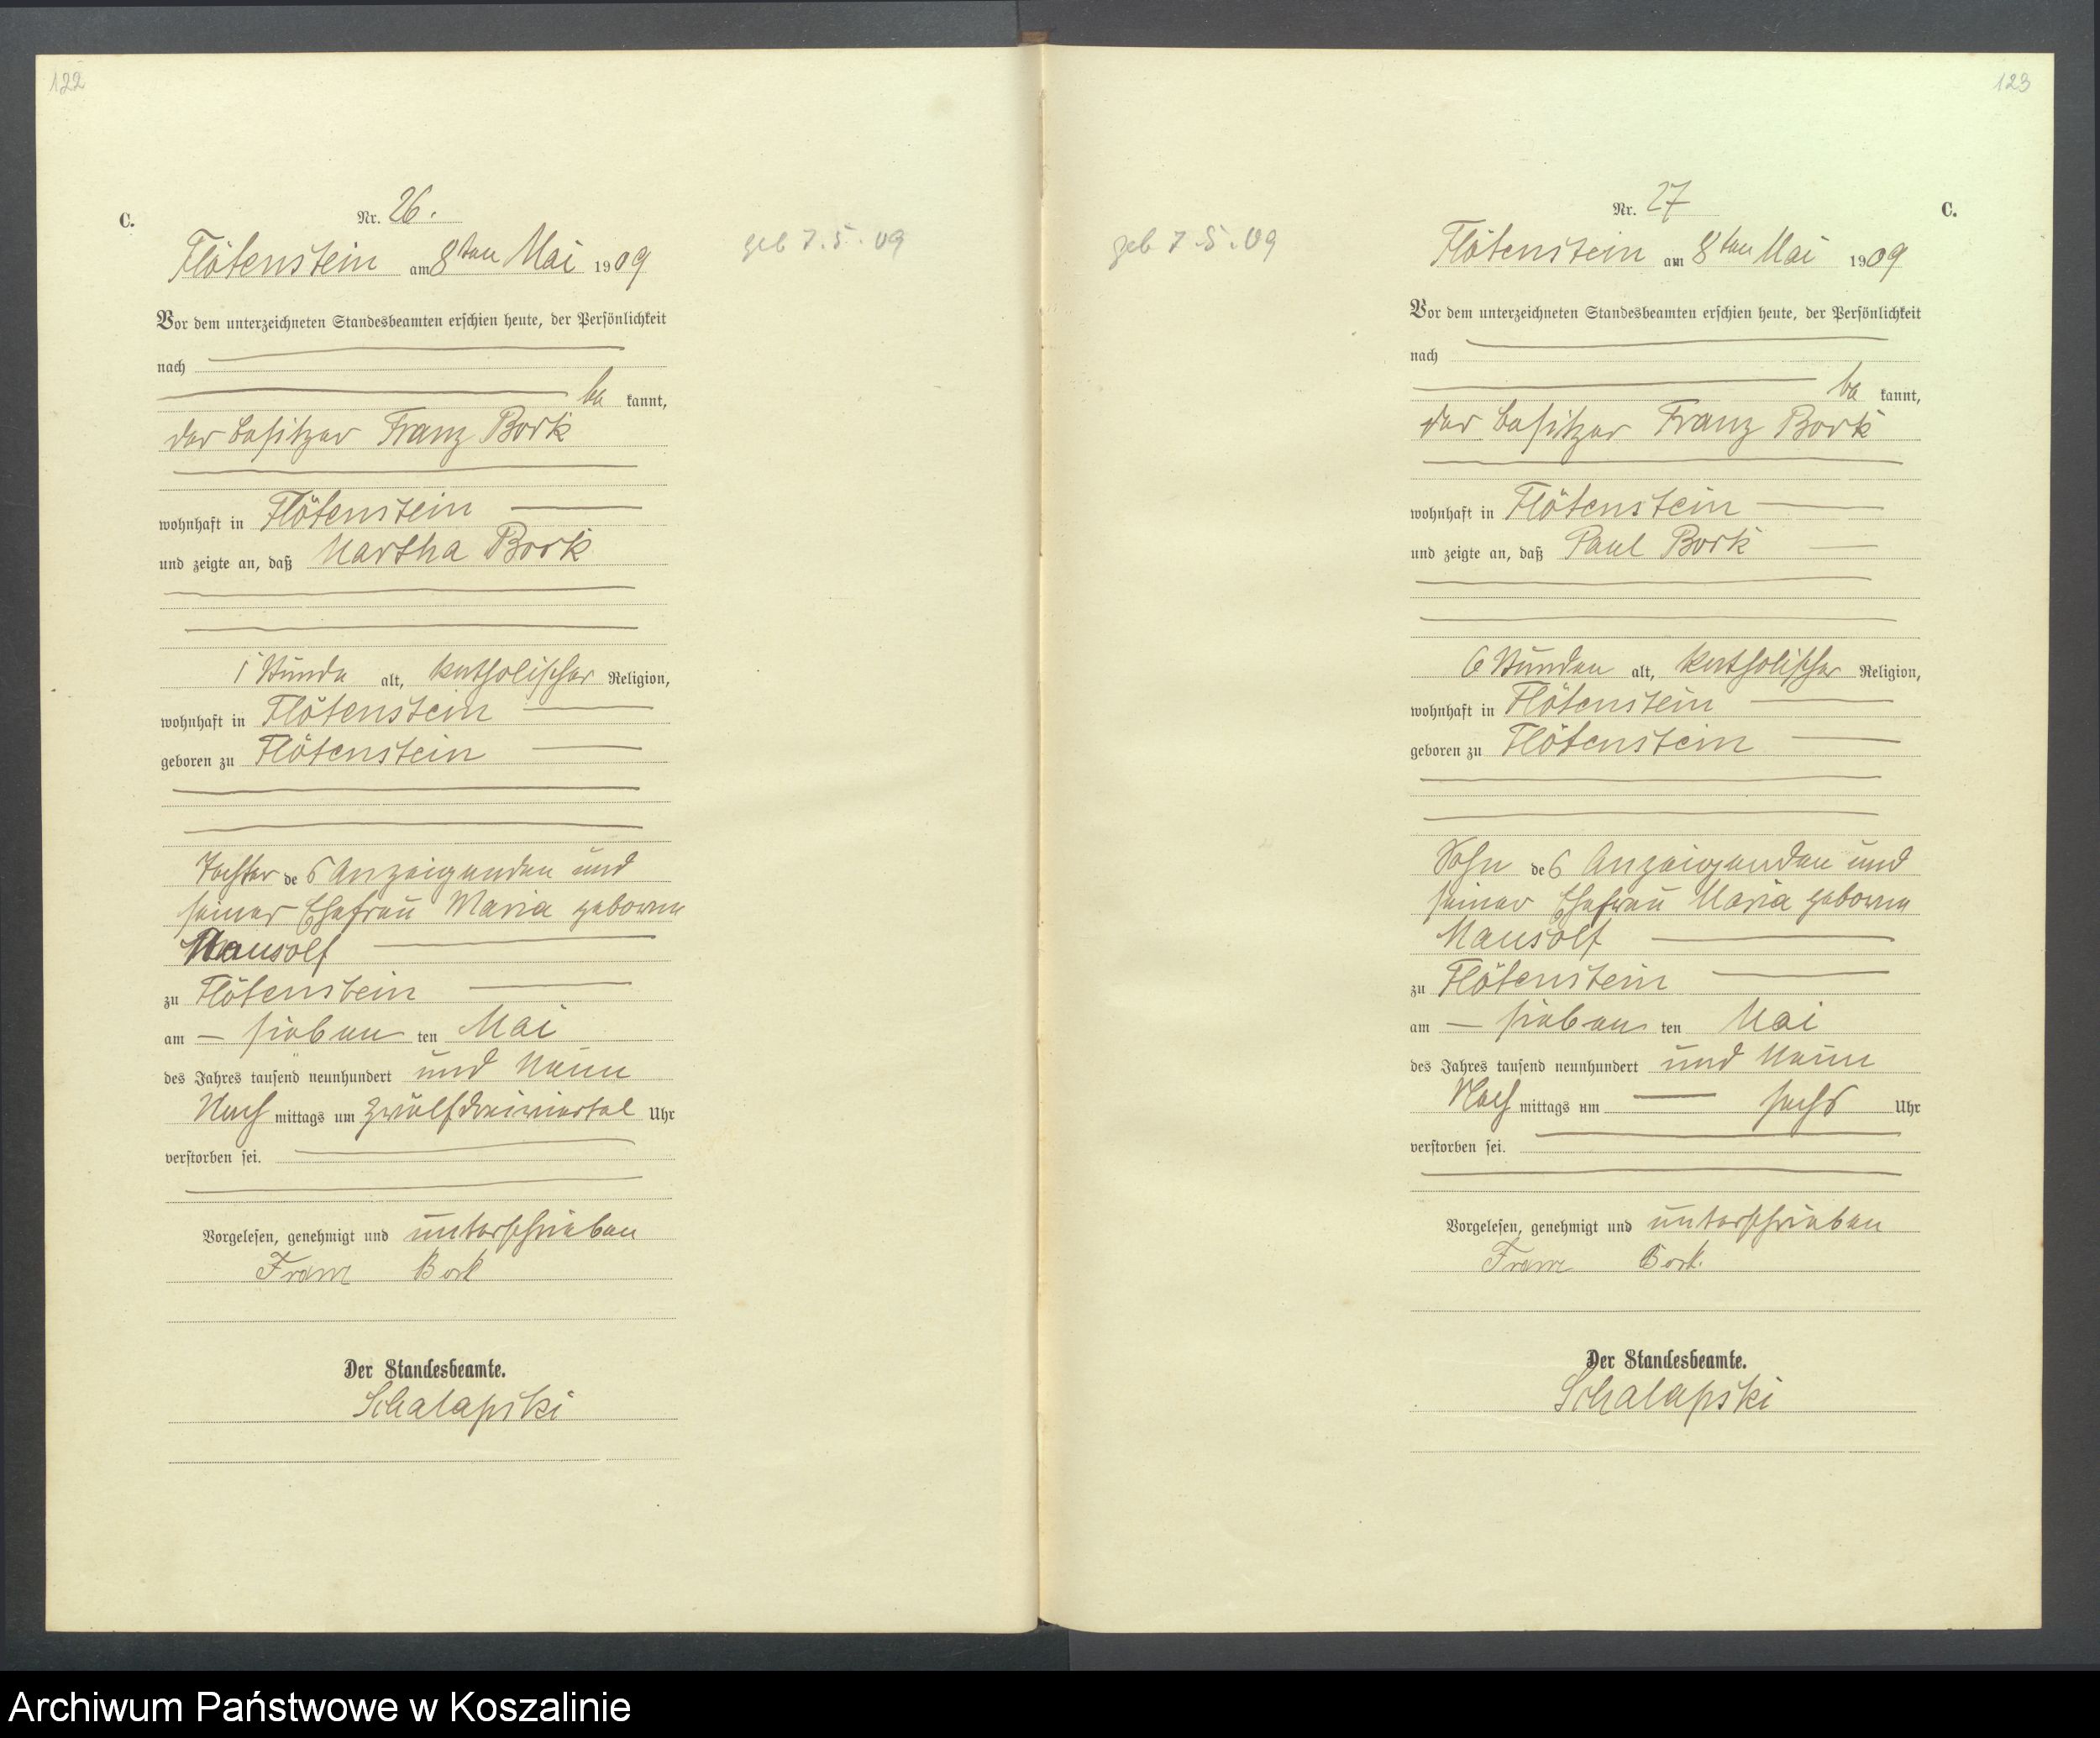 122
C.
Nr. 26.
Flötenstein am 8ten Mai 1909
geb 7.5.09
Vor dem unterzeichneten Standesbeamten erschien heute, der Persönlichkeit
nach
be kannt,
der Besitzer Franz Bork
wohnhaft in Flötenstein
und zeigte an, daß Martha Bork
1 Stunde alt, katholischer Religion,
wohnhaft in Flötenstein
geboren zu Flötenstein
Tochter des Anzeigenden und
seiner Ehefrau Maria geborene
Mausolf
zu Flötenstein
am – sieben ten Mai
des Jahres tausend neunhundert und neun
Nach mittags um zwölf dreiviertel Uhr
verstorben sei.
Vorgelesen, genehmigt und unterschrieben
Franz Bork
Der Standesbeamte.
Schalapski
123
Nr. 27
C.
geb 7.5.09
Flötenstein am 8ten Mai 1909
Vor dem unterzeichneten Standesbeamten erschien heute, der Persönlichkeit
nach
be kannt,
der Besitzer Franz Bork
wohnhaft in Flötenstein
und zeigte an, daß Paul Bork
6 Stunden alt, katholischer Religion,
wohnhaft in Flötenstein
geboren zu Flötenstein
Sohn des Anzeigenden und
seiner Ehefrau Maria geborene
Mausolf
zu Flötenstein
am – sieben ten Mai
des Jahres tausend neunhundert und neun
Nach mittags um sechs Uhr
verstorben sei.
Vorgelesen, genehmigt und unterschrieben
Franz Bork.
Der Standesbeamte.
Schalapski
Archiwum Państwowe w Koszalinie